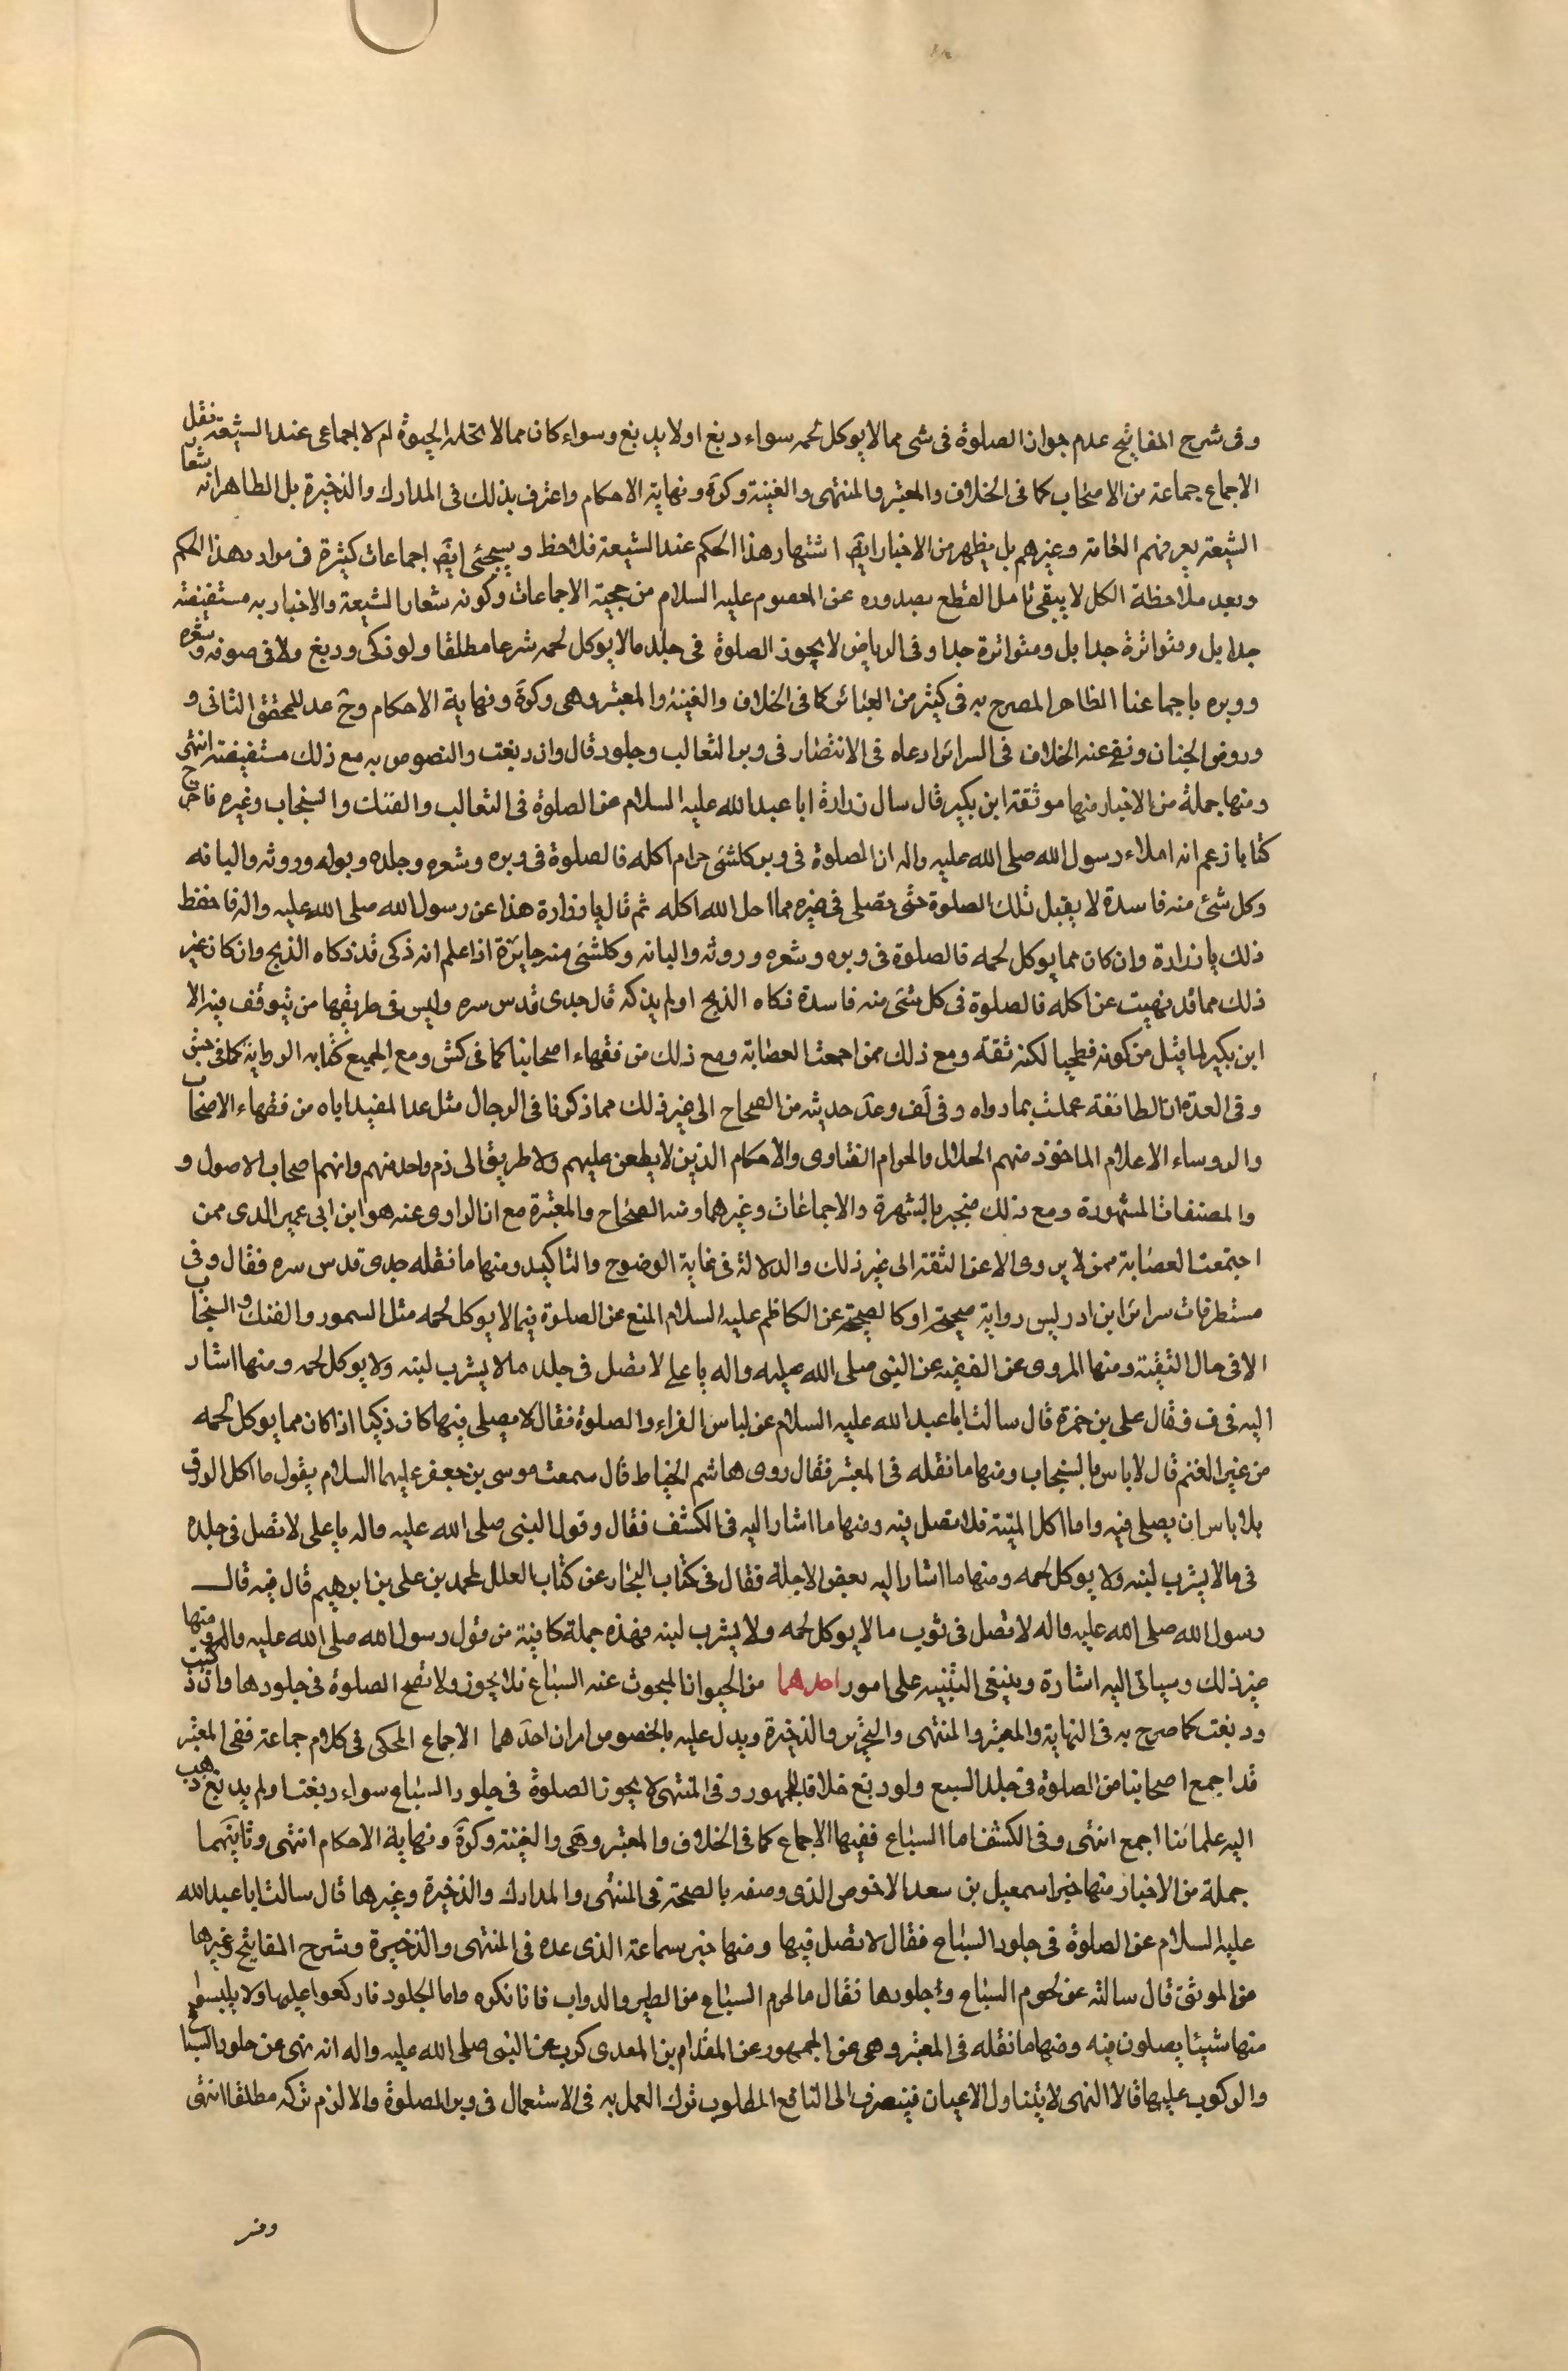 وفى شرح المفاتيح عدم جواز الصلوة فى شى مما لا يوكل لحمه سواء دبغ او لا يدبغ وسواء كان مما لا تحله الحيوة ام لا اجماعى عند الشيعة نقل
الاجماع جماعة من الاصحاب كما فى الخلاف والمعتبر والمنتهى والغنية وكرة ونهاية الاحكام واعترف بذلك فى المدارك والذخيرة بل الظاهر انه شعار
الشيعة يعرفهم العامة وغيرهم بل يظهر من الاخبار ايضا اشتهار هذا الحكم عند الشيعة فلاحظ وسيجئى ايضا اجماعات كثيرة فى مواد هذا الحكم
وبعد ملاحظة الكل لا يبقى تامل القطع بصدوره عن المعصوم عليه السلام من حجية الاجماعات وكونه شعار الشيعة والاخبار به مستفيضة
جدا بل ومتواترة جدا بل ومتواترة جدا وفى الرياض لا يجوز الصلوة فى جلد مالا يوكل لحمه شرعا مطلقا ولو ذكى ودبغ ولا فى صوفه وشعره
ووبره باجماعنا الظاهر المصرح به فى كثير من العبائر كما فى الخلاف والغنية والمعتبر وهى وكرة ونهاية الاحكام وح عد للمحقق الثانى و
وروض الجنان ونفى عنه الخلاف فى السرائر ادعاه فى الانتصار فى وبر الثعالب وجلود قال وان دبغت والنصوص به مع ذلك مستفيضة انتهى
ومنها جملة من الاخبار منها موثقة ابن بكير قال سال زرارة ابا عبد الله عليه السلام عن الصلوة فى الثعالب والفنك والسنجاب وغيره فاخرج
كتابا زعم انه املاء رسول الله صلى الله عليه واله ان الصلوة فى وبر كلشى حرام اكله فالصلوة فى وبره وشعره وجلده وبوله وروثه والبانه
وكل شئ منه فاسدة لا يقبل تلك الصلوة حتى تصلى فى غيره مما احل الله اكله ثم قال يا زرارة هذا عن رسول الله صلى الله عليه واله فاحفظ
ذلك يا زرارة وان كان مما يوكل لحمه فالصلوة فى وبره وشعره وروثه والبانه وكلشى منه جايزة اذا علم انه ذكى قد ذكاه الذبح وان كان غير
ذلك مما قد نهيت عن اكله فالصلوة فى كل شى منه فاسدة ذكاه الذبح او لم يذكه قال جدى قدس سره وليس فى طريقها من يتوقف فيه الا
ابن بكير لما قيل من كونه فطحيا لكنه ثقة ومع ذلك ممن اجمعت العصابة ومع ذلك من فقهاء اصحابنا كما فى كش ومع الجميع كتابه الرواية كما فى جش
وفى العدة ان الطائفة عملت بما رواه وفى لف وعد حديثه من الصحاح الى غير ذلك مما ذكرنا فى الرجال مثل عد المفيد اياه من فقهاء الاصحاب
والروساء الاعلام الماخوذ منهم الحلال والحرام الفتاوى والاحكام الذين لا يطعن عليهم ولا طريق الى ذم واحد منهم وانهم اصحاب الاصول و
والمصنفات المشهورة ومع ذلك منجبر بالشهرة والاجماعات وغيرهما ومنه الصحاح والمعتبرة مع ان الراوى عنه هو ابن ابى عمير الذى ممن
اجتمعت العصابة ممن لا يروى الا عن الثقة الى غير ذلك والدلالة فى غاية الوضوح والتاكيد ومنها ما نقله جدى قدس سره فقال وفى
مستطرفات سرائر ابن ادريس رواية صحيحة او كالصحيحة عن الكاظم عليه السلام المنع عن الصلوة فيما لا يوكل لحمه مثل السمور والفنك والسنجاب
الا فى حال التقية ومنها المروى عن الفقيه عن النبى صلى الله عليه واله يا على لا تصل فى جلد ما لا يشرب لبنه ولا يوكل لحمه ومنها اشار
اليه فى ف فقال على بن حمزة قال سالت ابا عبد الله عليه السلام عن لباس الفراء والصلوة فقال لا يصلى فيها كان ذكيا اذا كان مما يوكل لحمه
من غير الغنم قال لا باس بالسنجاب ومنها ما نقله فى المعتبر فقال روى هاشم الخياط قال سمعت موسى بن جعفر عليهما السلام يقول ما اكل الورق
بلا باس ان يصلى فيه واما اكل الميتة فلا تصل فيه ومنها ما اشار اليه فى الكشف فقال وقول النبى صلى الله عليه واله يا على لا تصل فى جلده
فى ما لا يشرب لبنه ولا يوكل لحمه ومنها ما اشار اليه بعض الاجلة فقال فى كتاب البحار عن كتاب العلل لمحمد بن على بن ابرهيم قال فيه قال
رسول الله صلى الله عليه واله لا تصل فى ثوب ما لا يوكل لحمه ولا يشرب لبنه فهذه جملة كافية من قول رسول الله صلى الله عليه واله وفى منها
غير ذلك وسياتى اليه اشارة وينبغى التنبيه على امور احدهما من الحيوانا المبحوث عنه السباع فلا يجوز ولا تصح الصلوة فى جلودها وان ذكيت
ودبغت كما صرح به فى النهاية والمعتبر والمنتهى والتحرير والذخيرة ويدل عليه بالخصوص امران احدهما الاجماع المحكى فى كلام جماعة ففى المعتبر
قد اجمع اصحابنا من الصلوة فى جلد السبع ولو دبغ خلافا للجمهور وفى المنتهى لا يجوز الصلوة فى جلود السباع سواء دبغت او لم يدبغ ذهب
اليه علمائنا اجمع انتهى وفى الكشف اما السباع ففيها الاجماع كما فى الخلاف والمعتبر وهى والغنية وكرة ونهاية الاحكام انتهى وثانيهما
جملة من الاخبار منها خبر اسمعيل بن سعد الاخوص الذى وصفه بالصحة فى المنتهى والمدارك والذخيرة وغيرها قال سالت ابا عبد الله
عليه السلام عن الصلوة فى جلود السباع فقال لا تصل فيها ومنها خبر سماعة الذى عده فى المنتهى والذخيرة وشرح المفاتيح وغيرها
من الموثق قال سالته عن لحوم السباع وجلودها فقال ما لحوم السباع من الطير والدواب فانا نكره واما الجلود فاركعوا عليها ولا يلبسوا
منها شيئا يصلون فيه ومنها ما نقله فى المعتبر وهى عن الجمهور عن المقدام بن المعدى كرب عن النبى صلى الله عليه واله انه نهى عن جلود السباع
والركوب عليها قالا النهى لا يتناول الاعيان فينصرف الى النافع المطلوب ترك العمل به فى الاستعمال فى وبر الصلوة والا لزم تركه مطلقا انتهى
ومنه